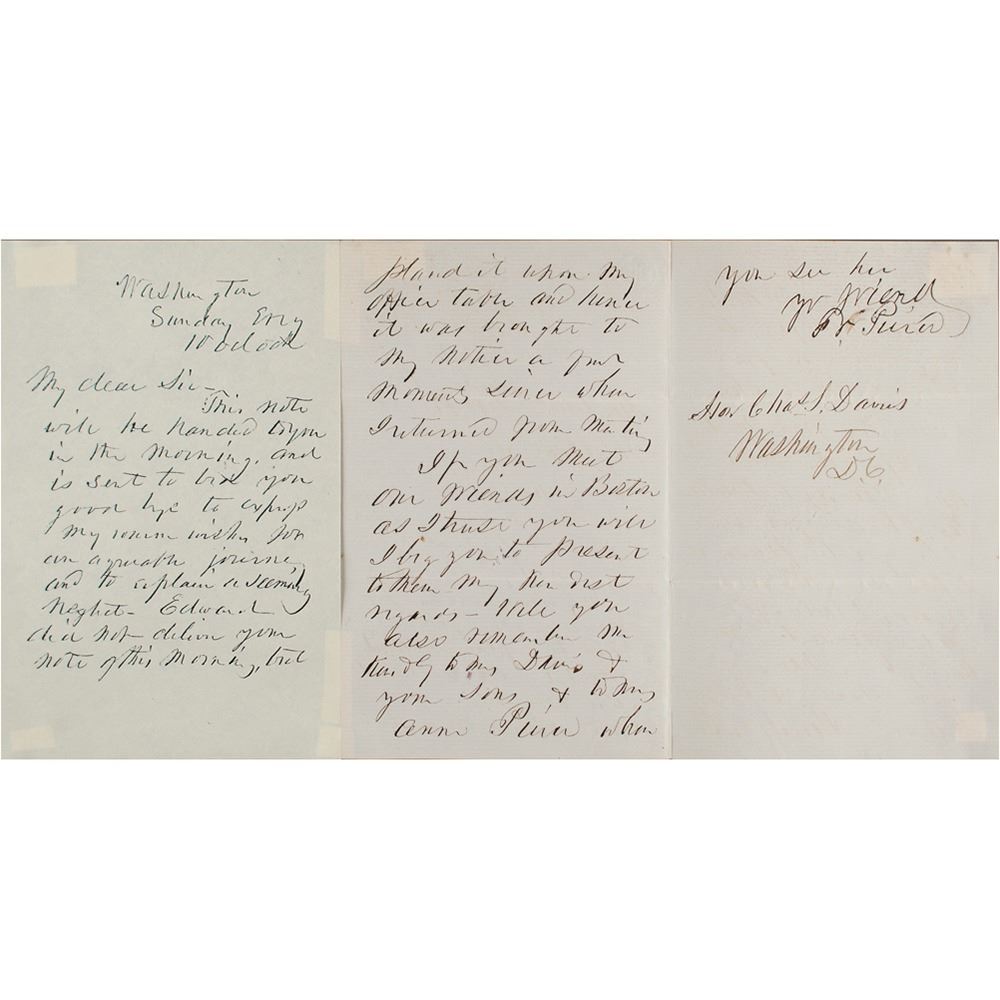 Washington
Sunday Evng
10 oclock
My dear Sir—
This note
will be handed to you
in the morning, and
is sent to bid you
good bye to express
my warm wishes for
an agreeable journey
and to explain a seeming
neglect— Edward
did not deliver your
note of this morning, but
placed it upon my
office table and hence
it was brought to
my notice a few
moments since when
I returned from meeting
If you meet
our friends in Boston
as I trust you will
I beg you to present
to them my kindest
regards— Will you
also remember me
kindly to Mrs Davis &
your sons & to Mrs
Anne Peirce when
you see her
yr friend
Peirce
Hon Chas. S. Davies
Washington
D.C.